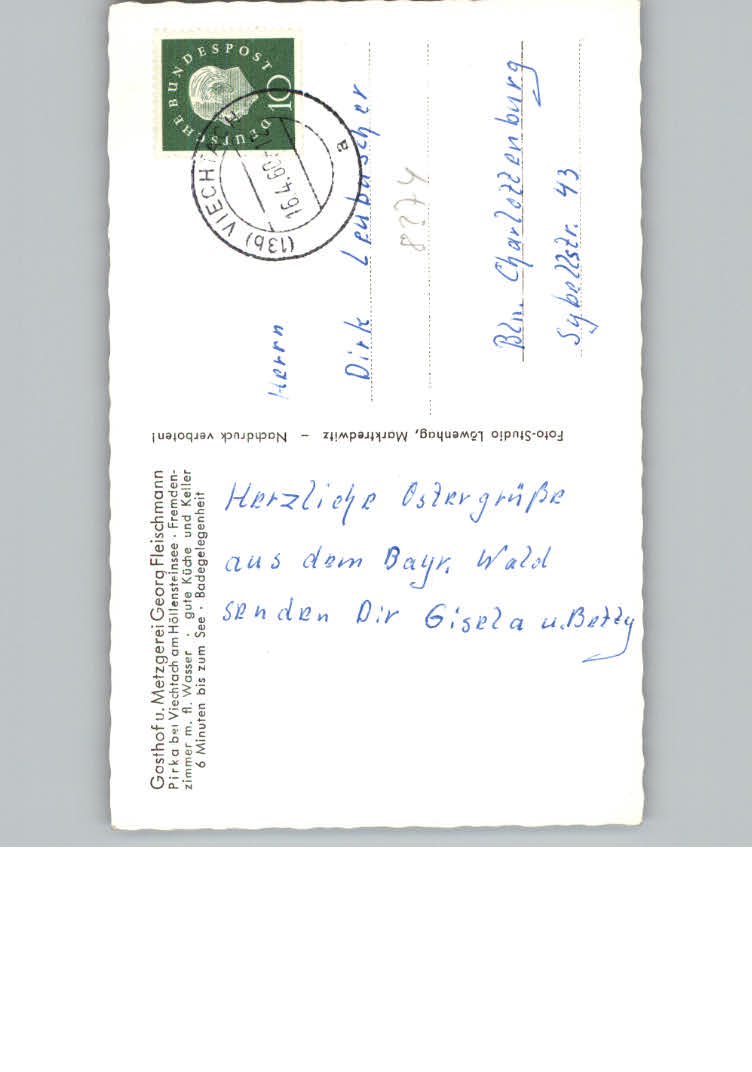 Gasthof u. Metzgerei Georg Fleischmann
Pirka bei Viechtach am Höllensteinsee · Fremden-
zimmer m. fl. Wasser · gute Küche und Keller
6 Minuten bis zum See · Badegelegenheit
Herzliche Ostergrüße
aus dem Bayr. Wald
senden Dir Gisela u. Betty
Foto-Studio Löwenhag, Marktredwitz – Nachdruck verboten!
DEUTSCHE BUNDESPOST
10
(13b) VIECHTACH
16.4.60
a
Herrn
Dirk Leubuscher
8274
Bln. Charlottenburg
Sybelstr. 43